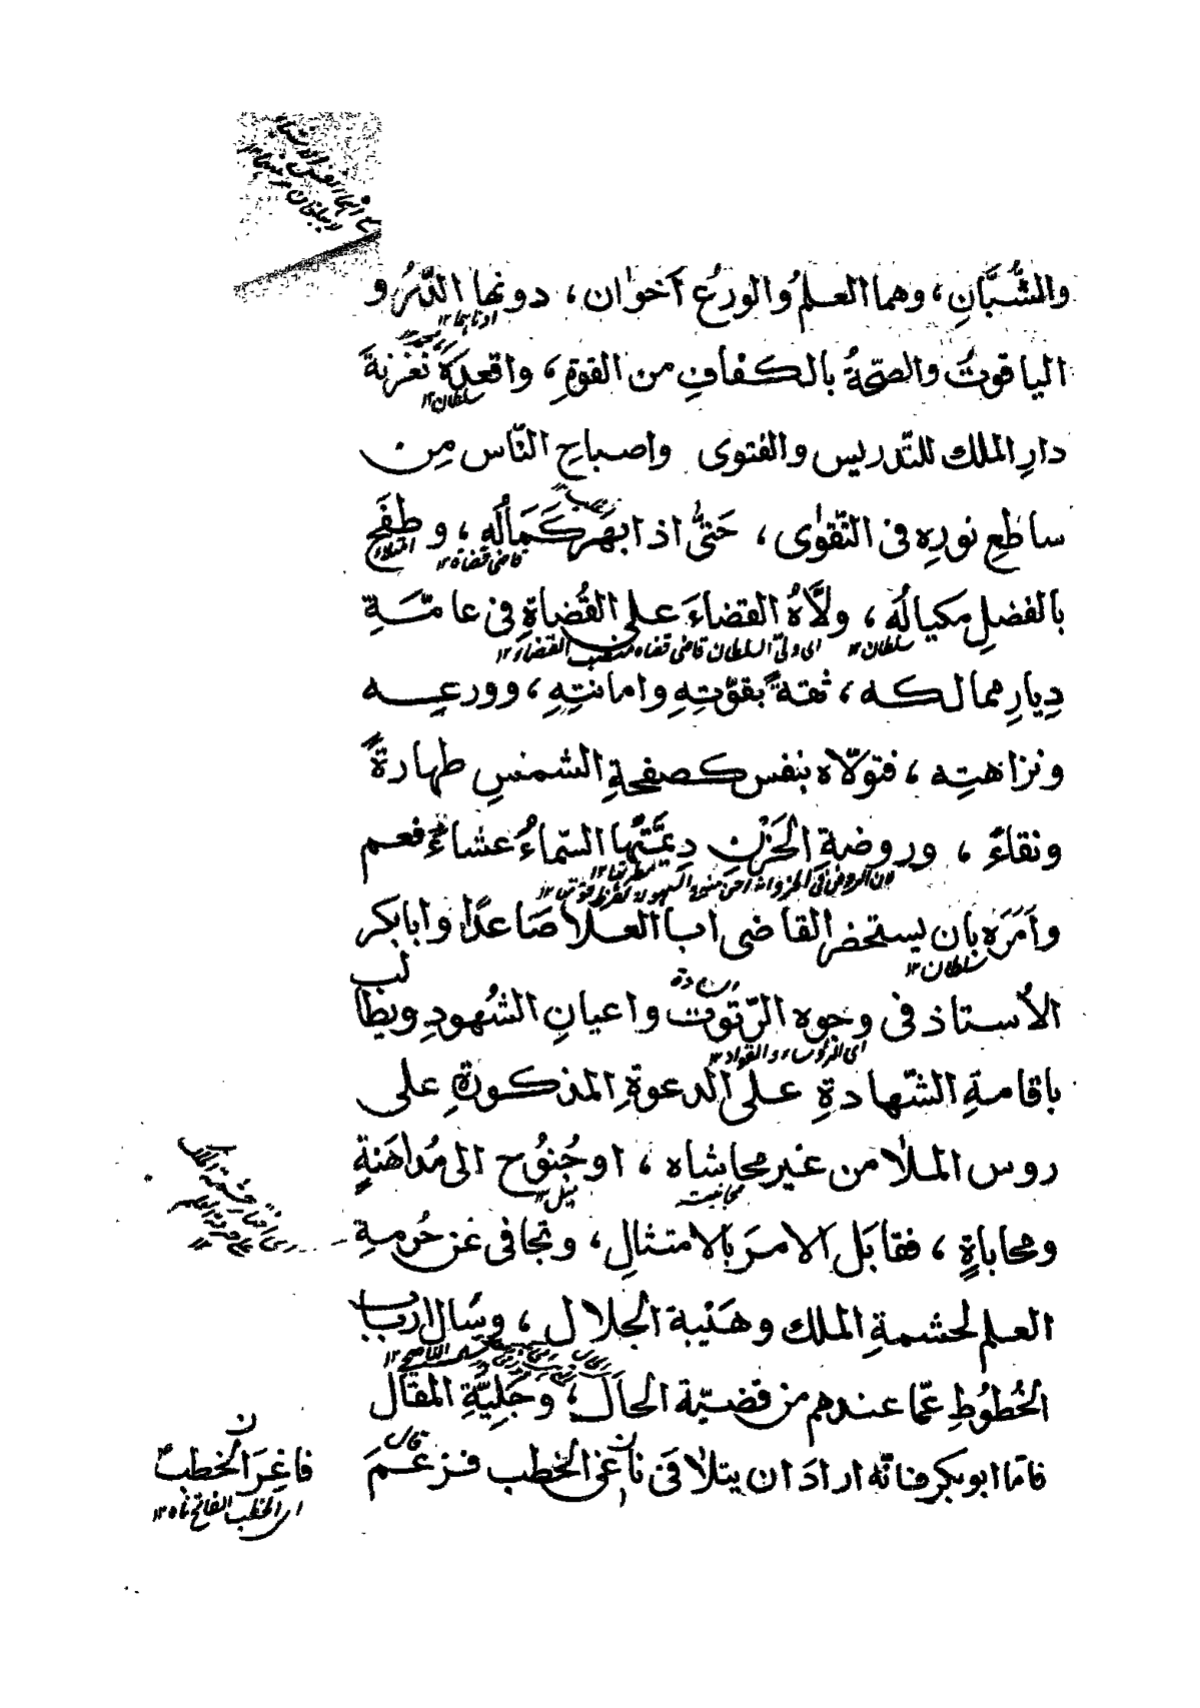 والشُّبَّانِ، وهما العلمُ والورعُ آخوٰان، دونها الدُّرُ و
ادناهما ١٢
الياقوتُ والصحّةُ بالكفافِ من القوةِ، واقعدَهٗ نغزنةَ
سلطان ١٢
دارِ الملك للتّدريس والفتوى واصباحِ النّاس مِن
ساطعِ نورِه فى التّقوٰى، حَتّىٰ اذا بهَر كَمَالُه، و طفَح
قاضى قضاة ١٢ امتلاء
بالفضلِ مكيالُه، ولَّاهُ القضاءَ على القُضاةِ فى عامّـةِ
سلطان ١٢ اى ولىّ السلطان قاضى قضاه منصب القضاء ١٢
دِيارِ ممالكه، ثقةً بقوّتِهِ وامانتِهِ، وورعِـه
ونزاهتِه، فتوَلّاه بنفس كصفحةِ الشمسِ طهارةً
ونقاءً، وروضةِ الحَزْنِ دِيمَّتْهَا السّماءُ عشاءً فعم
مطرتها ١٢
وأمَرَه بان يستحضر القاضى ابا العلا صَاعدًا وابابكر
سلطان ١٢
الأستاذ فى وجوه الرّتوت واعيانِ الشهُودِ ويطالب
اى الرؤساء والقواد ١٢
باقامةِ الشّهادةِ على الدعوةِ المذكورةِ على
روس الملأ من غير محاشاه، اوجُنوُح الى مُداهَنةٍ
مجانبت ميل ١٢
ومحاباةٍ، فقابَل الامرَ بالامتثالِ، وتجافى عن حُرمةِ
العلم لحشمةِ الملك وهَيْبة الجلال، وسُال ارباب
الخُطوُطِ عمّا عندهم من قضيّة الحال، وجَليّةِ المقال
فامّا ابوبكر فانّه اراد ان يتلافى ناغى الخطب فزعمَ
قال
فاغِرَ الخطب
ن